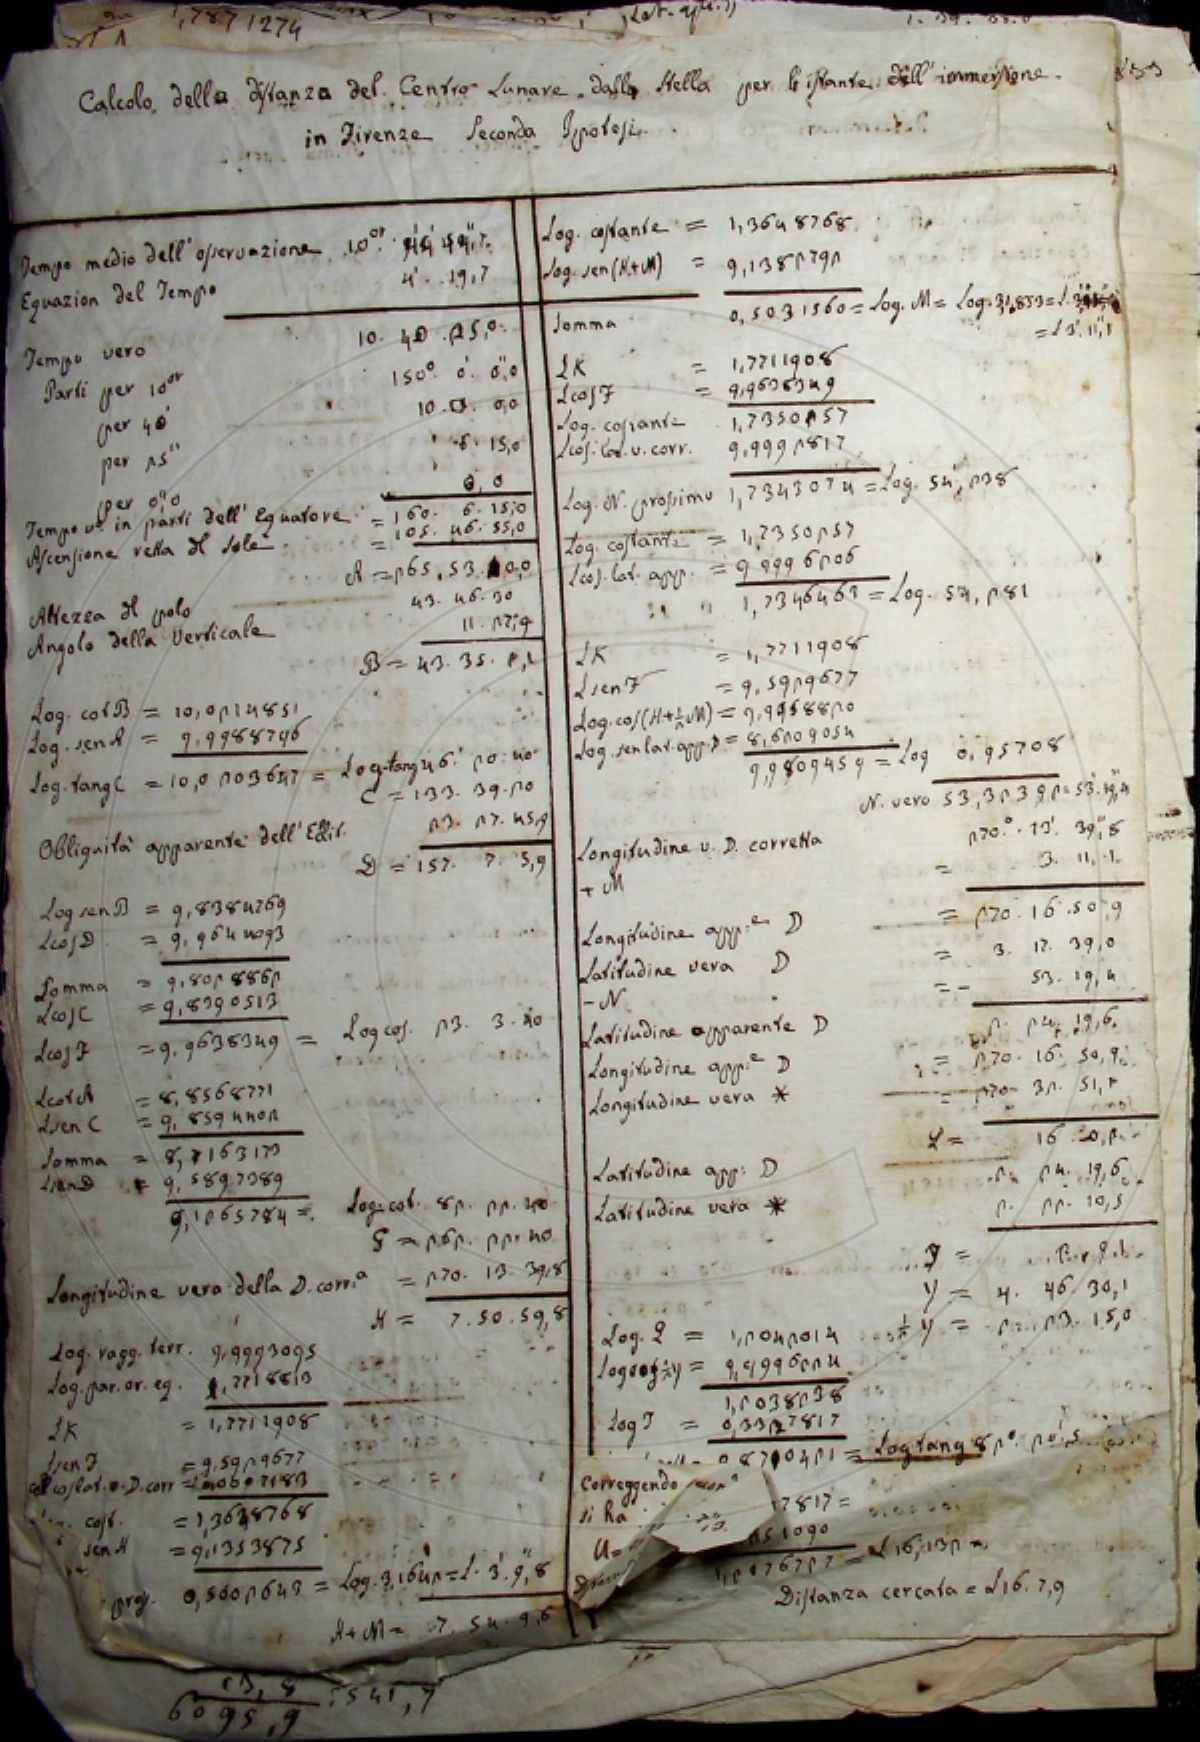 1,7871274
Calcolo della distanza del Centro Lunare dalla Stella per l'istante dell'immersione
in Firenze Seconda Ipotesi.
Tempo medio dell'osservazione 10.or
Equazion del Tempo 4. 19,7
Tempo vero 10. 40. 25,0
Parti per 10or 150°. 0. 0,0
per 40' 10. 0. 0,0
per 25" 6. 15,0
per 0",0 0,0
Tempo v.o in parti dell'Equatore = 160. 6. 15,0
Ascensione retta del Sole = 105. 46. 55,0
A = 265. 53. 10,0
Altezza del polo 43. 46. 30
Angolo della Verticale 11. 27,9
B = 43. 35. 2,1
Log. cot B = 10,0214851
Log. sen A = 9,9988746
Log. tang C = 10,0203647 = Log. tang 46. 20. 40
C = 133. 39. 20
Obliquità apparente dell'Eclit. 23. 27. 45,9
D = 157. 7. 5,9
Log sen B = 9,8384769
L cos D = 9,9644093
Somma = 9,8028862
L cos C = 9,8390513
L cos F = 9,9638349 = Log cos. 23. 3. 40
L cot A = 8,8568771
L sen C = 9,8594402
Somma = 8,7163173
L sen D = 9,5897389
9,1265784 = Log. cot. 82. 22. 40
G = 262. 22. 40
Longitudine vera della D. corr.a = 270. 13. 39,8
H = 7. 50. 59,8
Log. ragg. terr. 9,9993095
Log. par. or. eq. 1,7718813
LK = 1,7711908
L sen F = 9,5929677
cos lat. v. D. corr =
cost. = 1,3648768
sen H = 9,1353875
0,5002643 = Log. 3,1642 = L. 3'. 9",8
H + M = 7. 54. 9,6
Log. costante = 1,3648768
Log. sen (H+M) = 9,1382792
Somma 0,5031560 = Log. M = Log. 31,833 =
= L 3'. 11",1
LK = 1,7711908
L cos F = 9,9638349
Log. costante 1,7350257
L cos. lat. v. corr. 9,9992817
Log. N. prossimo 1,7343074 = Log. 54,238
Log. costante = 1,7350257
L cos. lat. app. = 9,9996206
1,7346463 = Log. 54,281
LK = 1,7711908
L sen F = 9,5929677
Log. cos (H+½M) = 9,9958820
Log. sen lat. app. D = 8,6209054
9,9809459 = Log 0,95708
N. vero 53,32392 = 53'. 19",4
Longitudine v. D. corretta 270°. 13'. 39",8
+ M = 3. 11,1
Longitudine app.e D = 270. 16. 50,9
Latitudine vera D = 3. 17. 39,0
- N = - 53. 19,4
Latitudine apparente D 2. 24. 19,6
Longitudine app.e D = 270. 16. 50,9
Longitudine vera * = 270. 32. 51,1
L = 16. 0,2
Latitudine app: D 2. 24. 19,6
Latitudine vera * 2. 22. 10,5
Y = 4. 46. 30,1
½ Y = 2. 23. 15,0
Log. L = 1,2042014
Log cos ½ y = 9,9996224
1,2038238
Log I = 0,3327817
0,8710421 = Log tang 82°. 20',5
Correggendo
si ha 7817 =
U =
= L 16,132
Distanza cercata = L 16. 7,9
13,8
6095,9 : 541,7